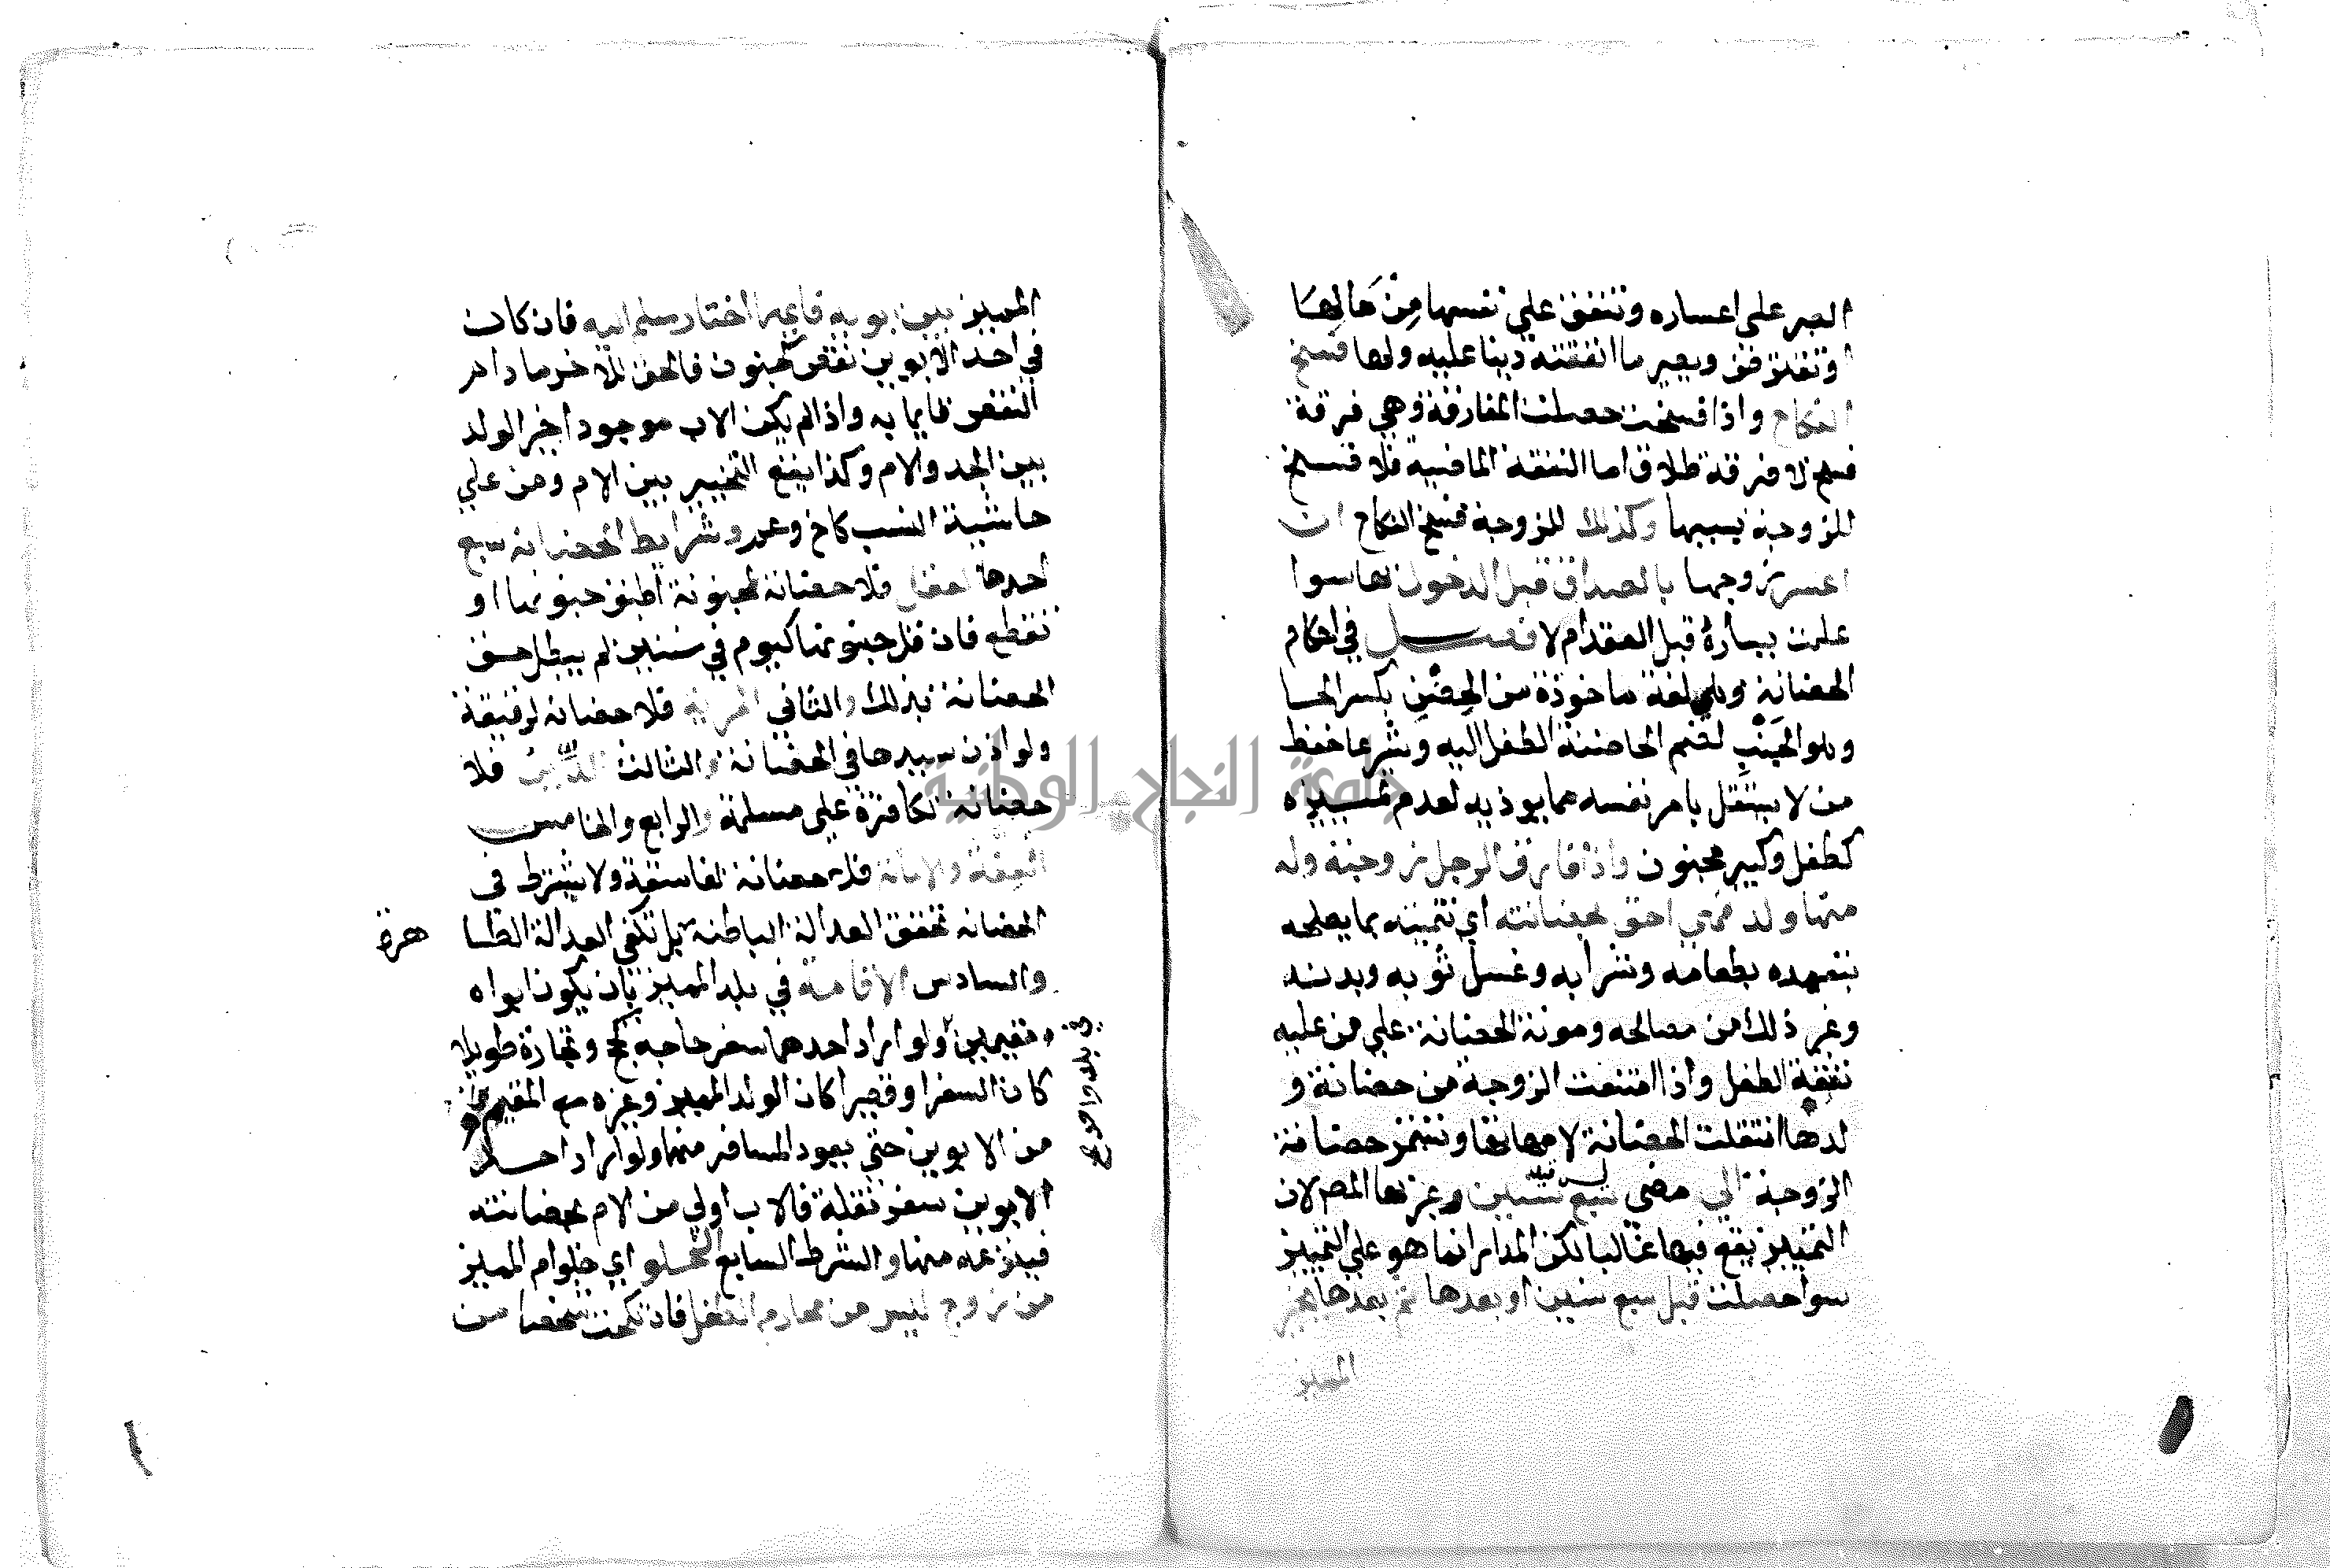 الصبر على اعساره وتنفق علي نفسها مِنْ مَالِهَا
او تقترض ويصير ما انفقته دينا عليه ولها فسخ
النكاح واذا فسخت حصلت المفارقة وهي فرقة
فسخ لا فرقة طلاق اما النفقة الماضية فلا فسخ
للزوجة بسببها وكذلك للزوجة فسخ النكاح ان
اعسر زوجها بالصداق قبل الدخول بها سوا
علمت يساره قبل العقد ام لا فصــل في احكام
الحضانة وهي لغة ماخوذة من الحِضْنِ بكسر الحا
وهو الجَنْبِ لضم الحاضنة الطفل اليه وشرعا حفظ
من لا يستقل بامر نفسه عما يوذيه لعدم تمييزه
كطفل وكبير مجنون واذا فارق الرجل زوجته وله
منها ولد فهي احق بحضانته اي تنميته بما يصلحه
بتعهده بطعامه وشرابه وغسل ثوبه وبدنه
وغير ذلك من مصالحه ومونة الحضانة علي من عليه
نفقة الطفل واذا امتنعت الزوجة من حضانة و
لدها انتقلت الحضانة لامهاتها وتستمر حضانة
الزوجة الي مضي سبع سنين وعبر بها المص لان
التمييز يقع فيها غالبا لكن المدار انما هو علي التمييز
سوا حصلت قبل سبع سنين او بعدها ثم بعدها يخير
المميز
المميز بين ابويه فايهما اختار سلم اليه فان كان
في احد الابوين نقص كجنون فالحق للاخر ما دام
النقص قايما به واذا لم يكن الاب موجود اخير الولد
بين الجد والام وكذا يقع التخيير بين الام ومن علي
حاشية النسب كاخ وعم وشرايط الحضانة سبع
احدها العقل فلا حضانة لمجنونة اطبق جنونها او
تقطع فان قل جنونها كيوم في سنين لم يبطل حق
الحضانة بذلك والثاني الحرية فلا حضانة لرقيقة
ولو اذن سيدها في الحضانة والثالث الدِّينُ فلا
حضانة لكافرة علي مسلمة والرابع والخامس
العِفة والامانة فلا حضانة لفاسقة ولا يشترط في
الحضانه تحقق العدالة الباطنة بل تكفي العدالة الظا
هرة
والسادس الاقامة في بلد المميز بان يكون ابواه
مقيمين ولو اراد احدهما سفر حاجه كحج وتجارة طويلا
في بلد واحد
كان السفر او قصيرا كان الولد المميز وغيره مع المقيم
من الابوين حتي يعود المسافر منهما ولو اراد احد
الابوين سفر نقلة فالاب اولي من الام بحضانته
فينزعه منها والشرط السابع الخلو اي خلو ام المميز
من زوج ليس من محارم الطفل فان نكحت شخصا من
جامعة النجاح الوطنية